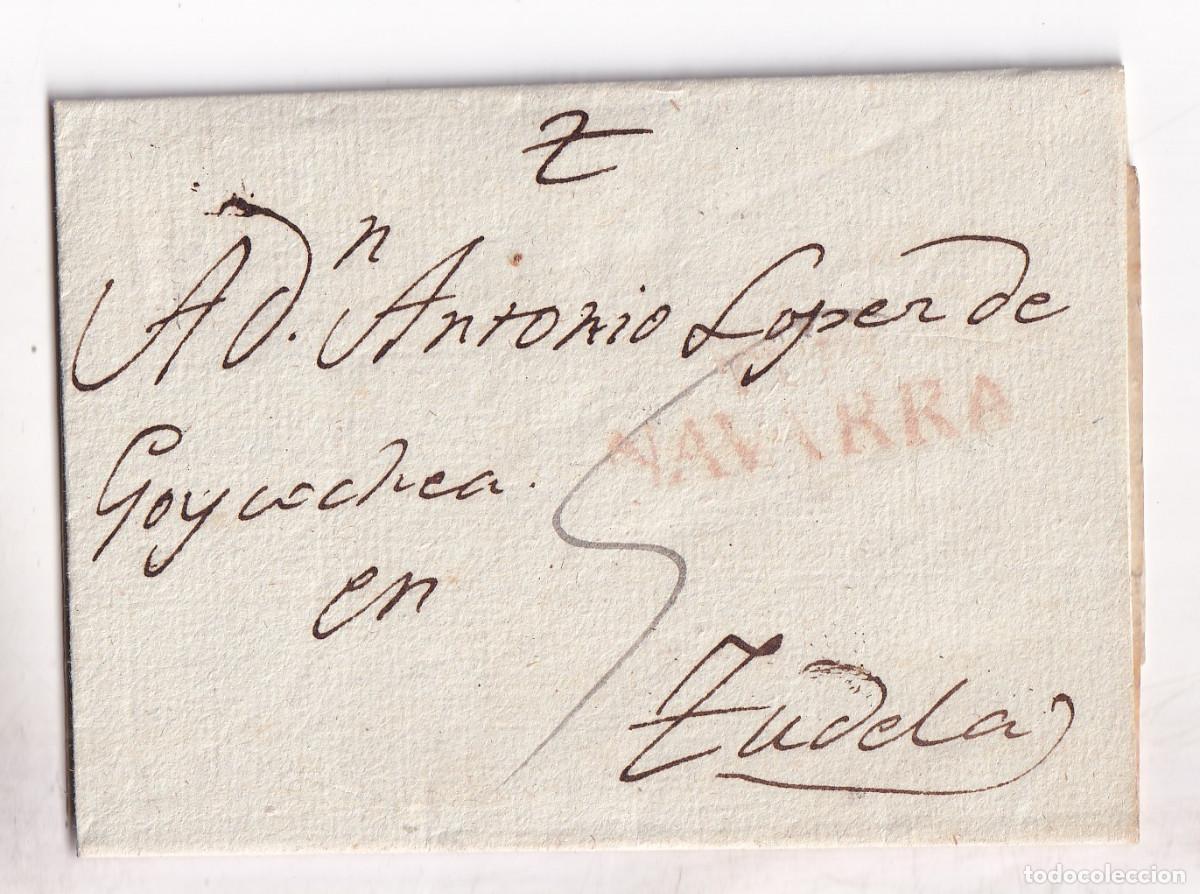 A Dn. Antonio Lopez de
NAVARRA
Goycochea.
en
Tudela
todocoleccion